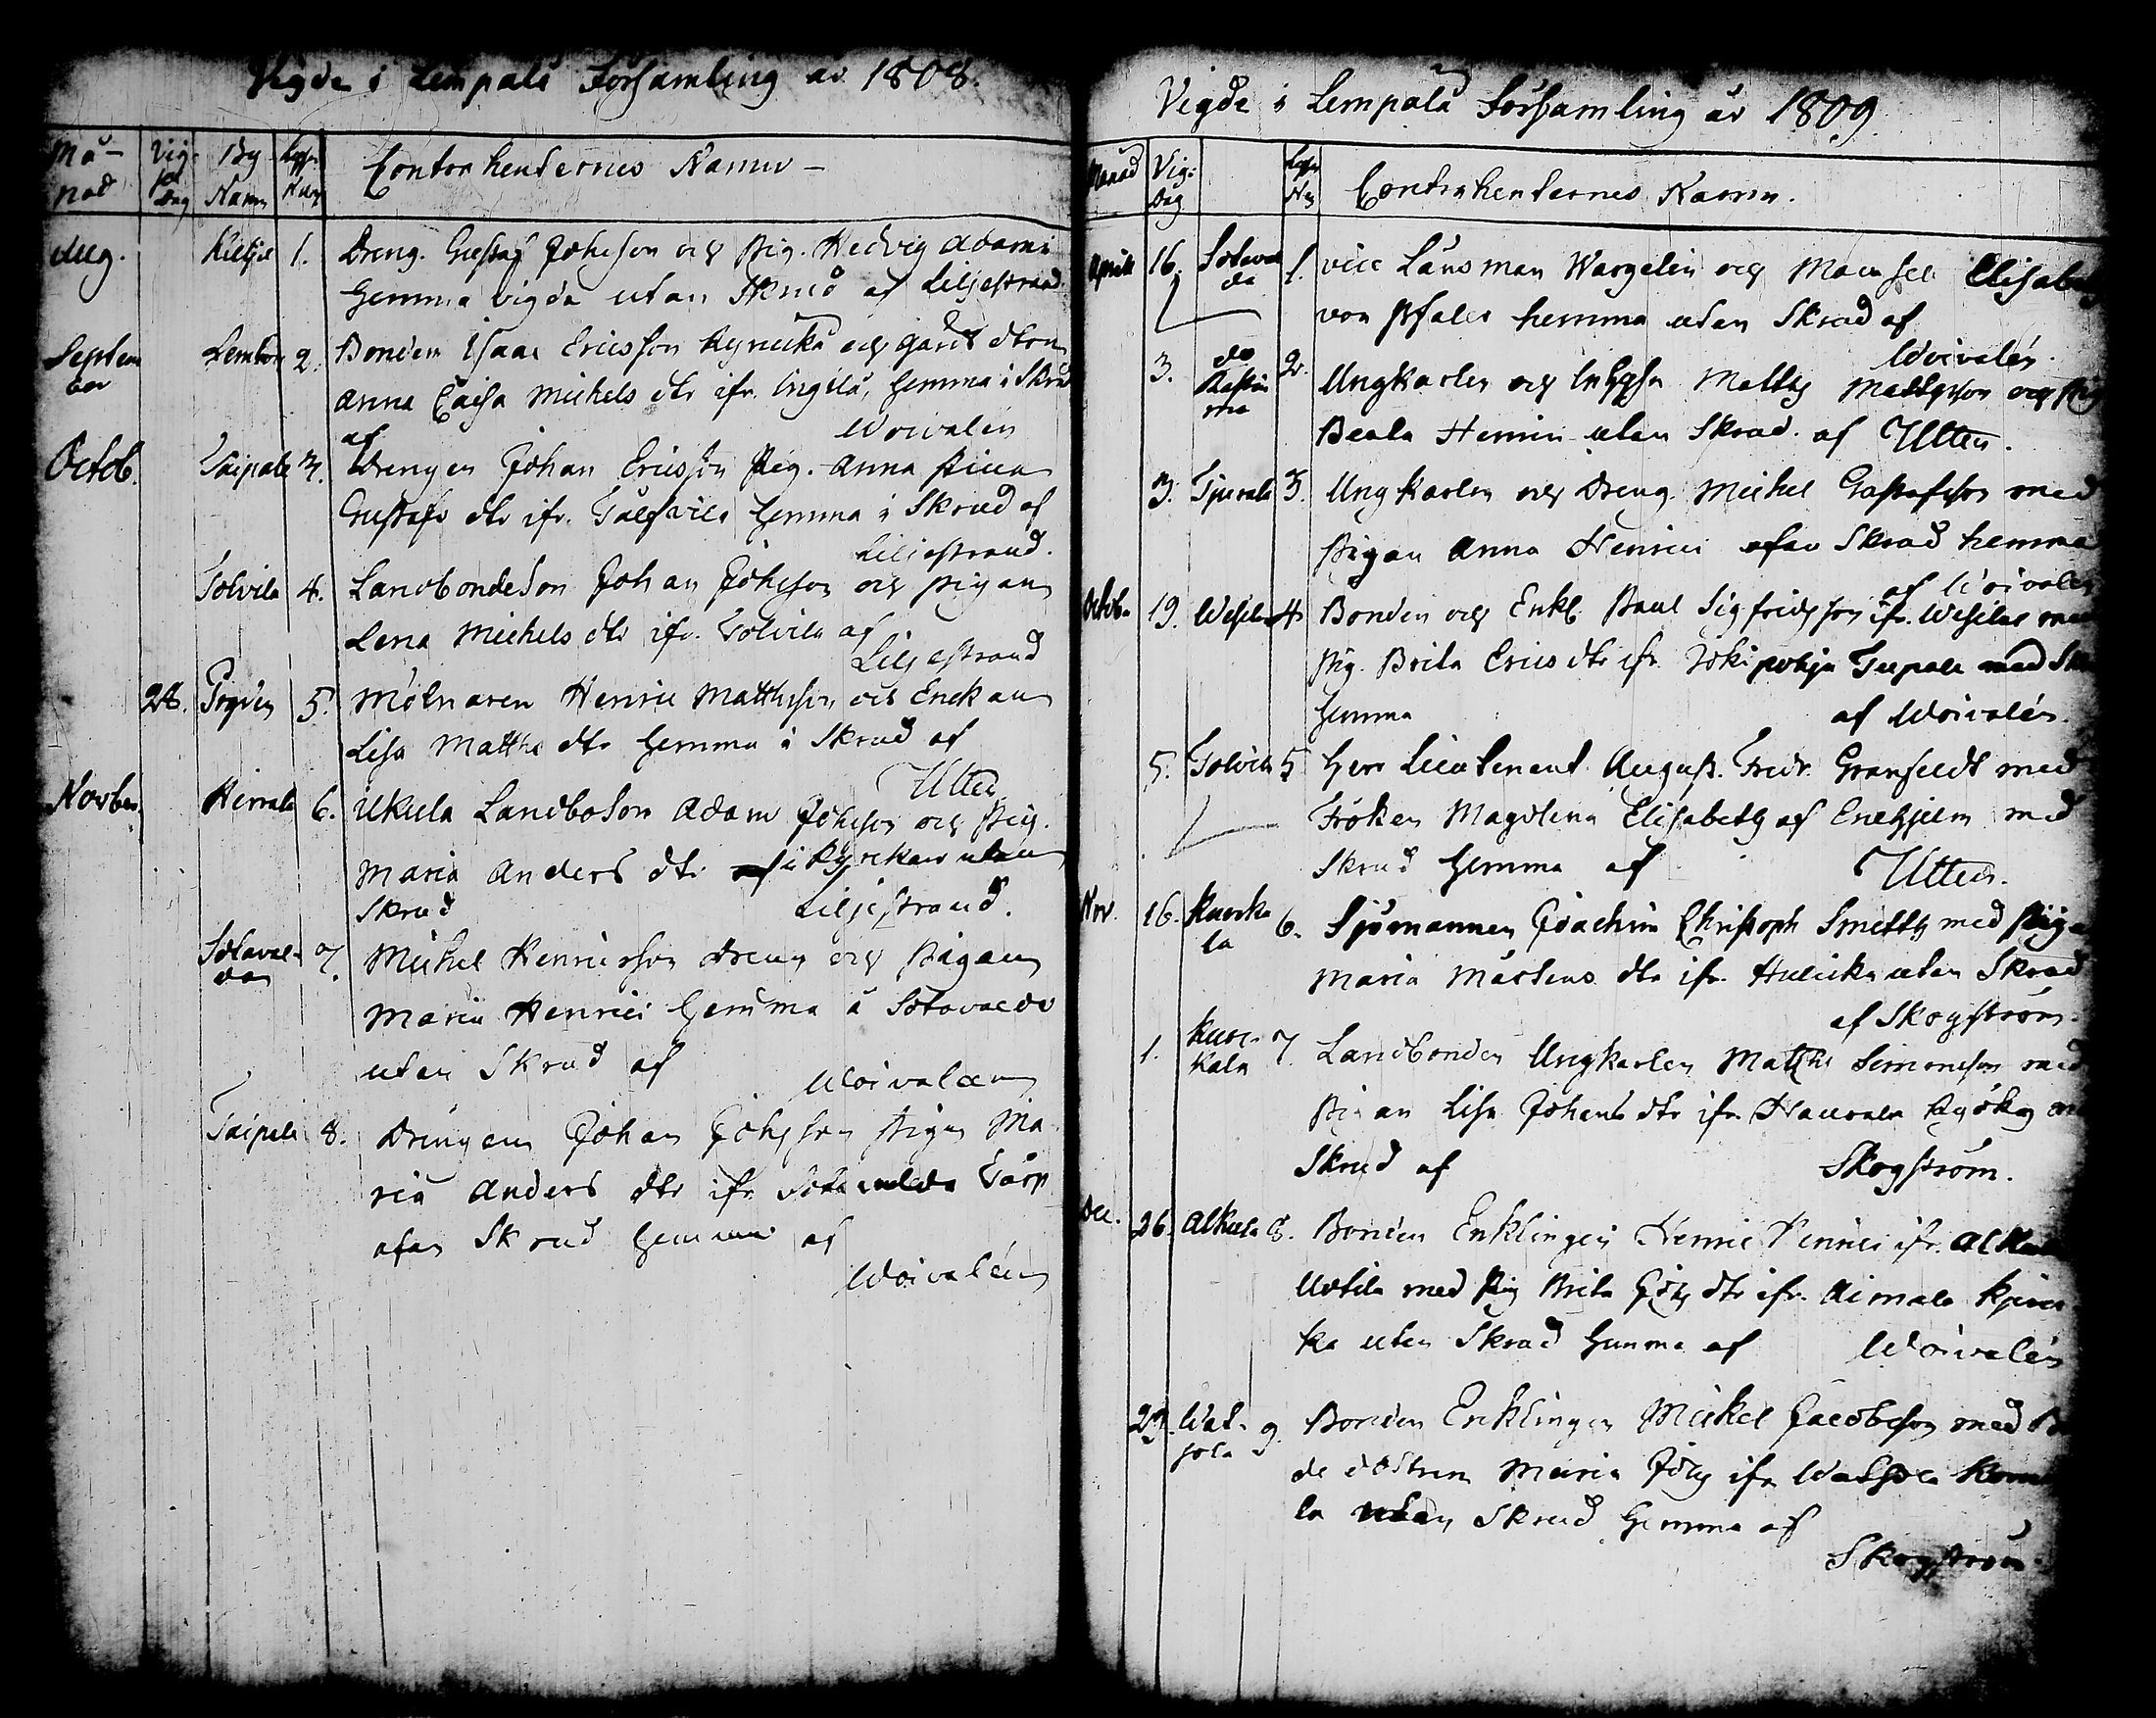 Vigde i Lempälä Församling år 1808.
Må-
nad
Vig-
Dag
By
Namn
Contrahenternes Namn -
Aug. Kulju 1. Dreng. Gustaf Johsson och Pig. Hedvig Adams
hemma vigda utan Skrud af Liljestrand.
Septem
ber
Lembon 2. Bonden Isaac Ericsson och gårds dtron
Anna Caisa Michels dtr ifr. Ingilä, hemma i Skrud
af Woivalén
Octob. Taipale 3. Drengen Johan Ericsson Pig. Anna Stina
Gustafs dtr ifr. hemma i Skrud af
Liljestrand.
Tolvila 4. LandbondeSon Johan Johsson och Pigan
Lena Michels dtr ifr. Tolvila af
Liljestrand
28. 5. Mölnaren Henric Matthsson och Enckan
Lisa Matths dtr hemma i Skrud af
Utter
Novber Herrala 6. Ukula LandboSon Adam Johsson och Pig.
Maria Anders dtr i Kyrckan utan
Skrud Liljestrand.
Sotaval-
dan
7. Michel Henricsson Dreng och Pigan
Maria Henrics hemma i Sotavalda
utan Skrud af
Woivalén
Taipale 8. Drengen Johan Johsson Pigan Ma-
ria Anders dtr ifr Sotavalda Torp
utan Skrud hemma af
Woivalén
Vigde i Lempälä Församling år 1809
Månad
Vig-
dag
Contrahenternes Namn.
April 16. Sotaval
da
1. vice Länsman Wargelin och Mamsell Elisabeth
von Pfaler hemma utan Skrud af
Woivalén.
3. do 2. Ungkarlen och Inhyses Matts Mattsson och Pig
Beata Henrics utan Skrud. af Utter.
3. 3. Ungkarlen och Dreng. Michel Gustafsson med
Pigan Anna Henrics utan Skrud hemma
af Woivalén
Octob. 19. Wesilax 4. Bonden och Enkl. Paul Sigfridsson ifr. Wesilax med
Pig. Brita Erics dtr ifr. Jokipohja Taipale med Skrud
hemma af Woivalén.
5. Tolvila 5 Herr Lieutenant August. Fredr. Granfeldt med
Fröken Magdlena Elisabeth af Enehjelm med
Skrud hemma af Utter.
Nov. 16. Kuocka
la
6. Sjömannen Joachim Christoph Smitth med Pigan
Maria Mårtens dtr ifr. utan Skrud
af Skogström.
1. Kuoc-
kala
7. Landbonden Ungkarlen Matths Simonsson med
Pigan Lisa Johans dtr ifr.
Skrud af Skogström.
Dec. 26. Alkula 8. Bonden Enklingen Henric Henrics ifr. Alkula
Uotila med Pig Brita Joh dtr ifr. Aimala
ka utan Skrud hemma af Woivalén
29. Wal-
jola
9. Bonden Enklingen Mickel Jacobsson med Bon
de dottren Maria Joh ifr
la utan Skrud hemma af
Skogström.